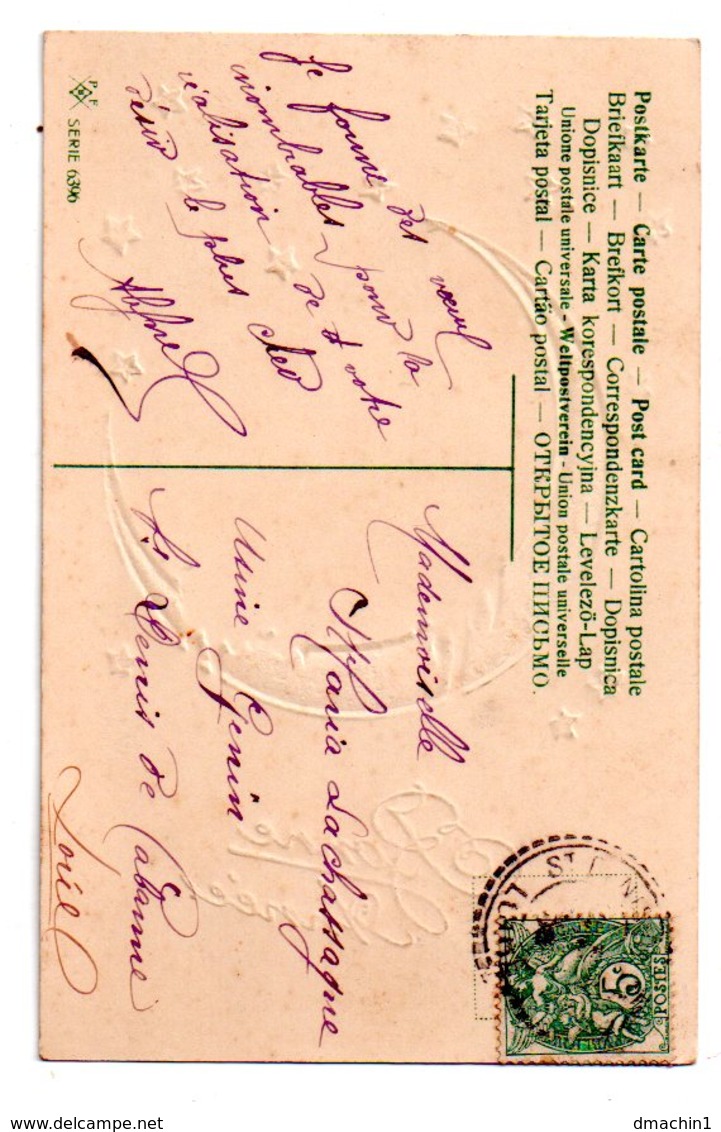 Postkarte — Carte postale — Post card — Cartolina postale
Briefkaart — Brefkort — Correspondenzkarte — Dopisnica
Dopisnice — Karta korespondencyjna — Levelező-Lap
Unione postale universale - Weltpostverein - Union postale universelle
Tarjeta postal — Cartão postal — ОТКРЫТОЕ ПИСЬМО.
Je forme des vœux
innombrables pour la
réalisation de votre
désir le plus cher
P F
SERIE 6396
Mademoiselle
Maria Lachassagne
Usine Genin
St Denis de Cabanne
Loire
Bonne
Année
ST
5c
POSTES
Delcampe.net
dmachin1